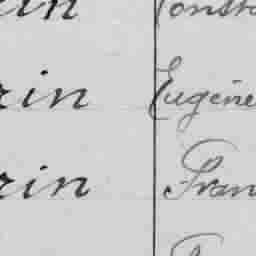 in Const
rin Eugène
rin Fran